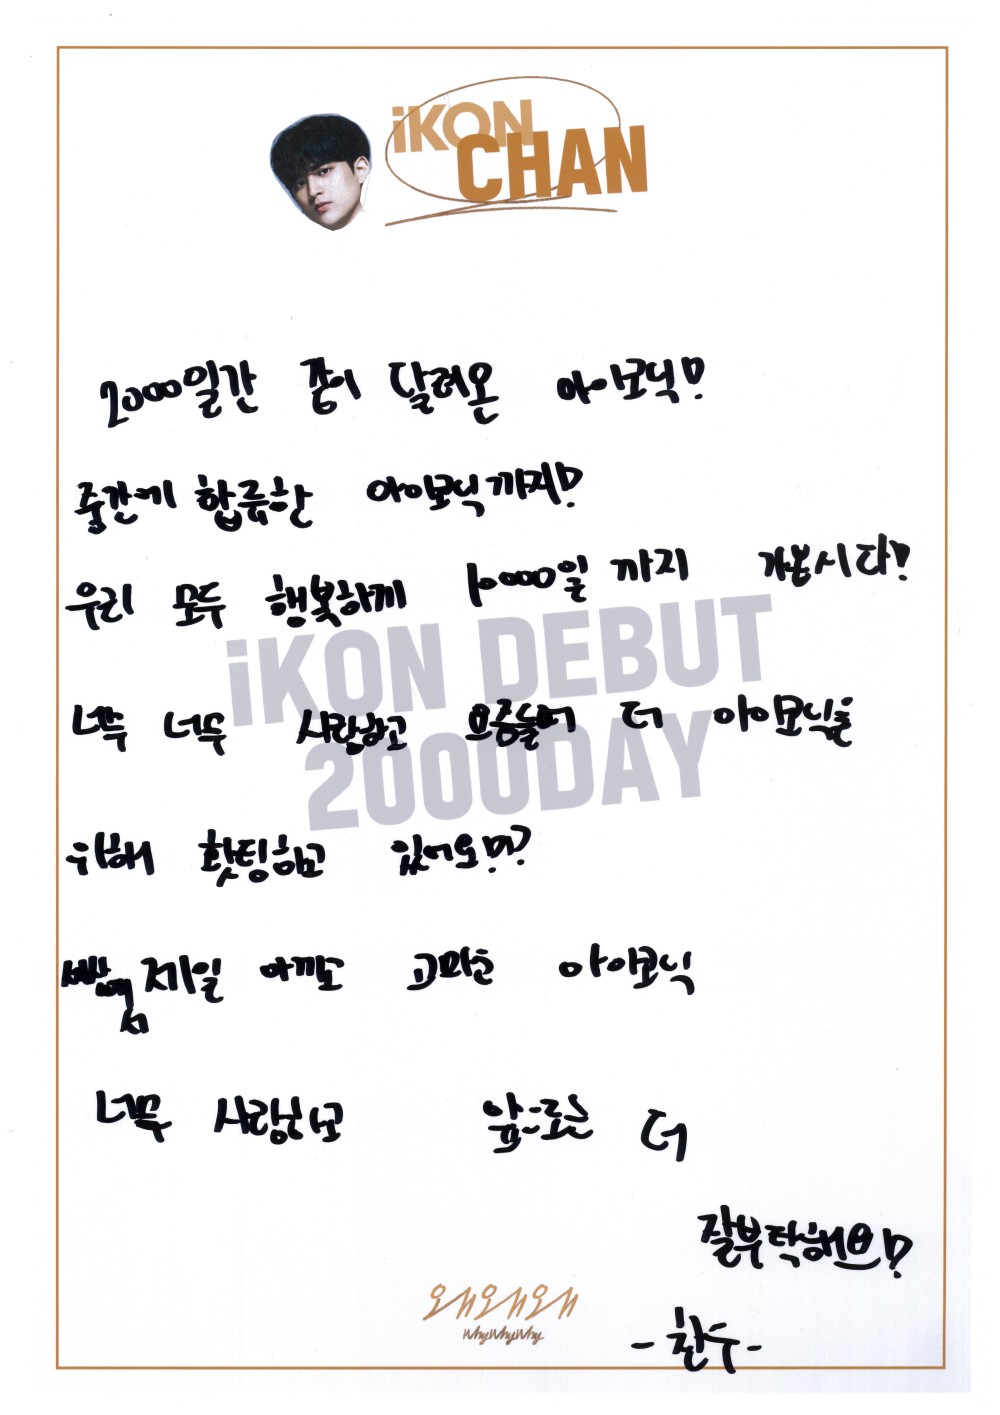 iKON
CHAN
2000일간 쭝이 달려온 아이코닉!
중간에 합류한 아이코닉까지!
우리 모두 행복하게 10000일까지 가봅시다!
iKON DEBUT
2000DAY
너무 너무 사랑하고 요즘들어 더 아이코닉을
위해 홧팅하고 있어요!!?
세상에서 제일 아끼고 고마운 아이코닉
너무 사랑하고 앞으로는 더
잘부탁해요!
왜왜왜
Why Why Why
-찬우-